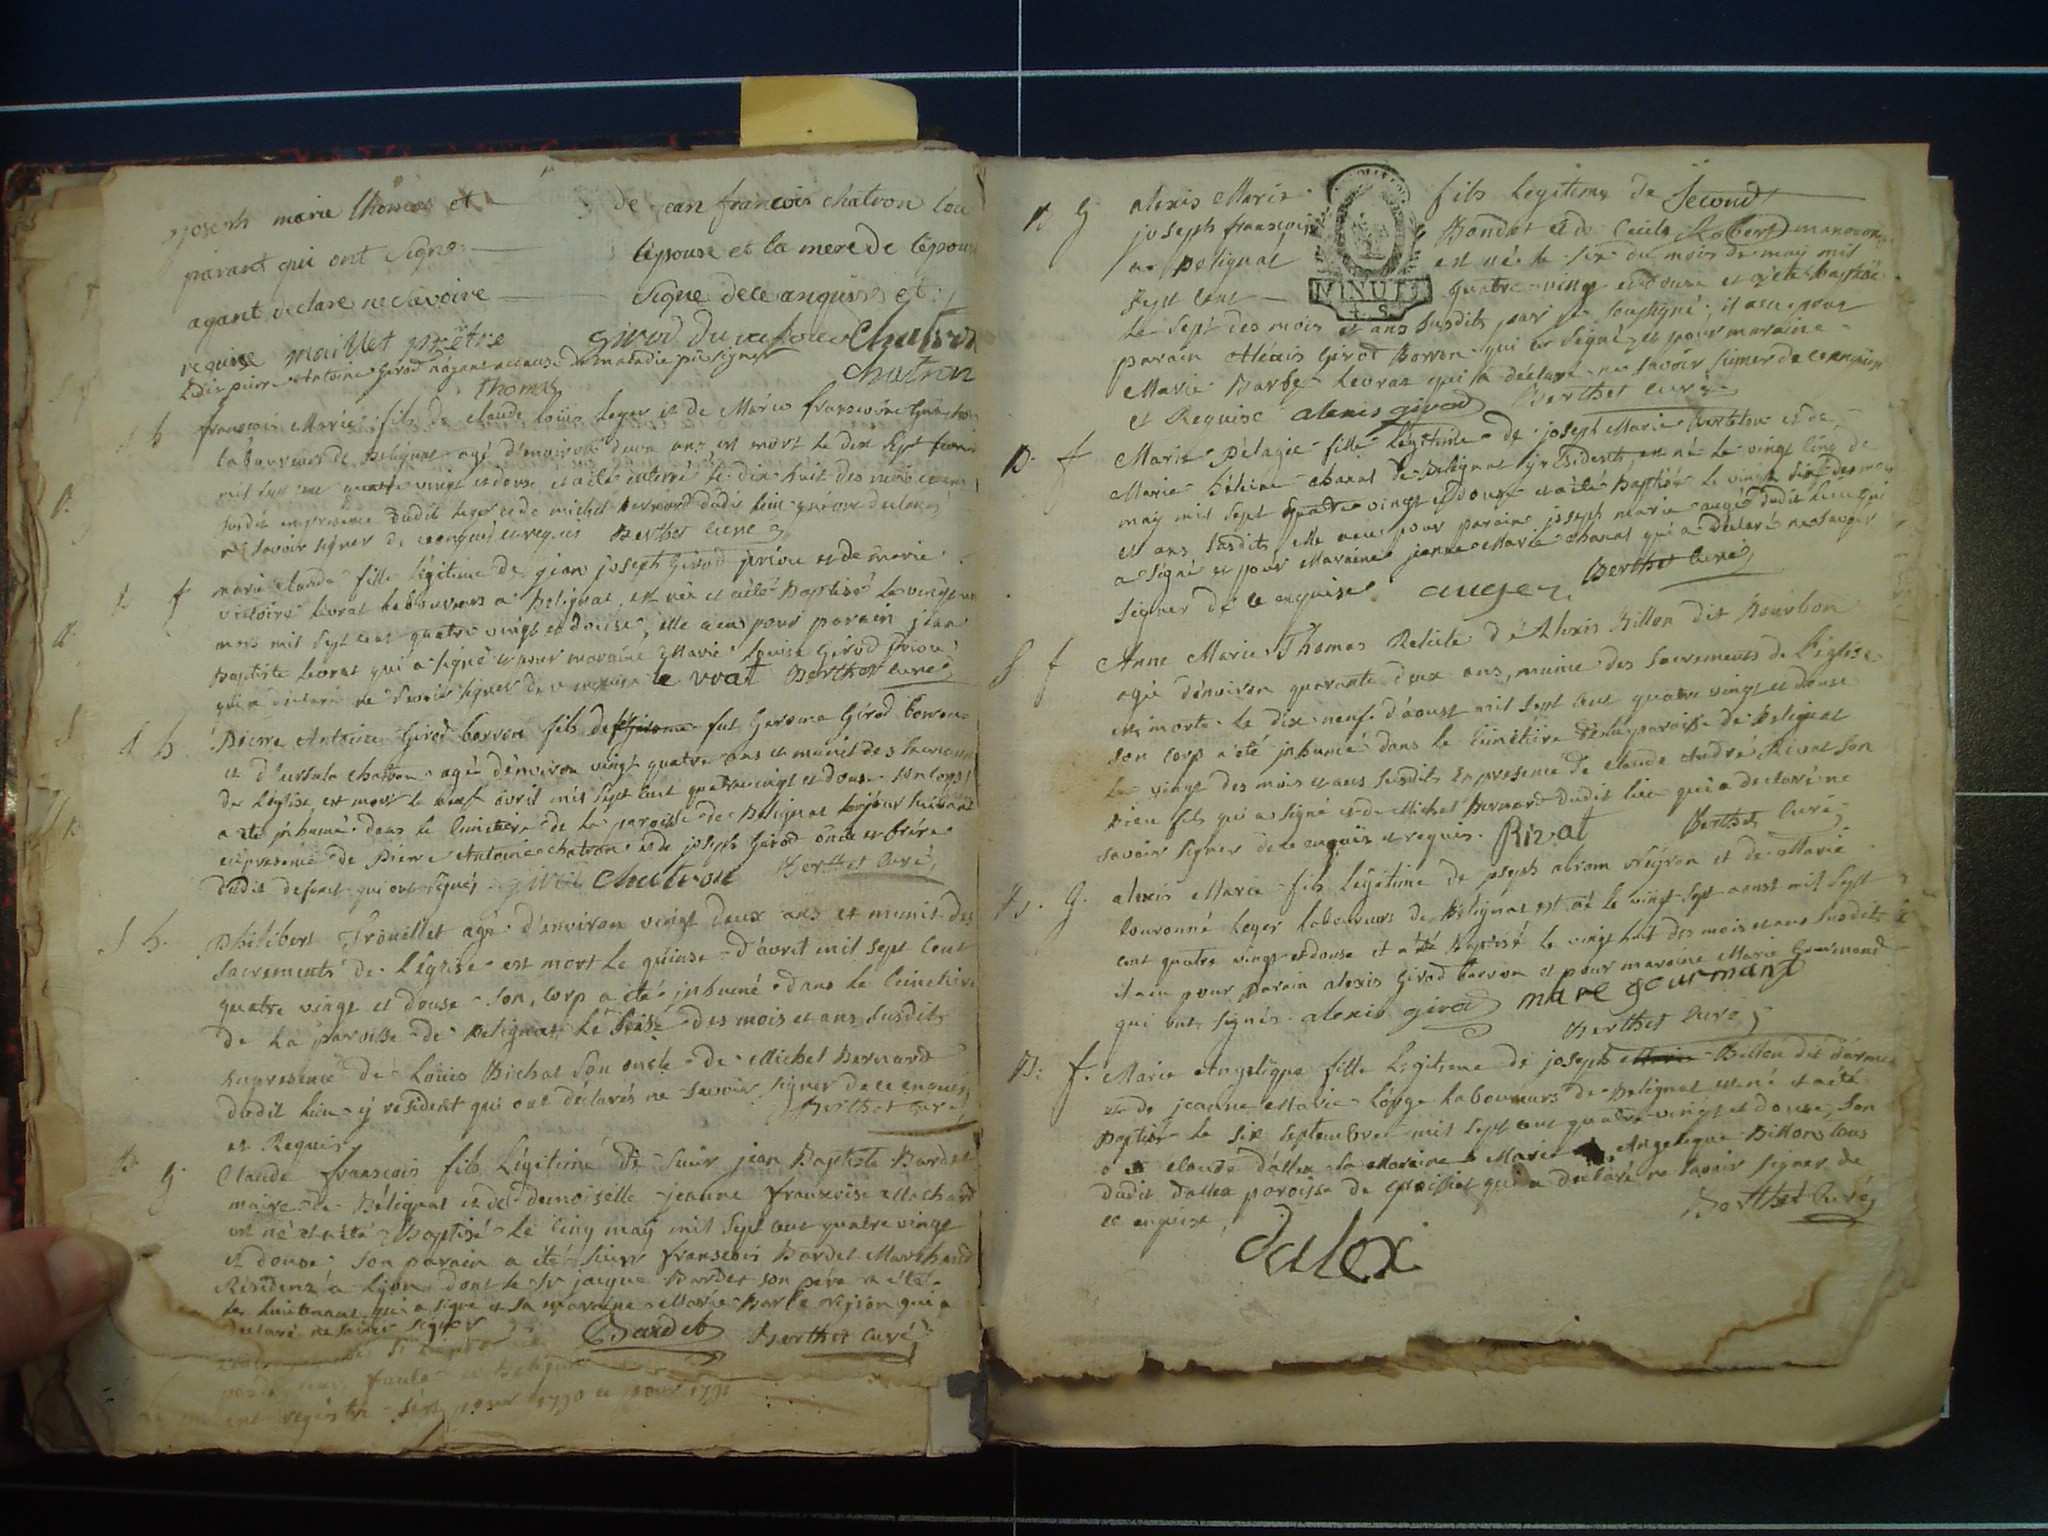 joseph marie thomas et de jean francois chatron
parant qui ont signe l'epouse et la mere de l'epouse
ayant declare ne savoire signe de ce anquise et
requise maillet prêtre girod chatron
ledit pierre Antoine Girod n'ayant a cause de maladie pu signer chatron
thomas
s h
françois Marie fils de claude Loüis Leger et de Marie françoise
laboureurs de Belignat agé d'environ deux ans est mort le dix sept
mil sept cent quatre vingt et douse et a été enterré le dix huit des mois et an
susdit en presence dudit leger et de michel Bernard dudit lieu qui ont declaré
ne savoir signer de ce enquis et requis Berthet curé
b f
marie claude fille légitime de jean joseph Girod priou et de marie
victoire levrat laboureurs a Belignat est née et a été Baptisé le vingt
mars mil sept cent quatre vingt et douse, elle a eu pour parain jean
Baptiste levrat qui a signé et pour maraine Marie Louise Girod priou
qui a déclaré ne savoir signer de ce enquise le vrat Berthet curé
s h
Pierre Antoine Girod borron fils de fut Gerome Girod borron
et d'ursule chatron agé d'environ vingt quatre ans et munit des sacrements
de l'église est mort le neuf avril mil sept cent quatre vingt et douse son corp
a été inhumé dans le cimetière de la paroisse de Belignat le jour suivant
en presence de Pierre Antoine chatron et de joseph Girod oncle et frère
dudit defunt qui ont signés girod chatron Berthet Curé
s h.
Philibert Trouillet agé d'environ vingt deux ans et munit des
sacrements de l'église est mort le quinse d'avril mil sept cent
quatre vingt et douse son corp a été inhumé dans le cimetière
de la paroisse de Belignat le seise des mois et ans susdits
en presence de Loüis Bichat son oncle de Michel Bernard
dudit lieu y resident qui ont déclarés ne savoir signer de ce enquis
et Requis Berthet curé
b g
Claude françois fils Légitime de sieur jean Baptiste Bardet
maire de Bélignat et de demoiselle jeanne françoise Mochard
est né et a été Baptisé le cinq may mil sept cent quatre vingt
et douse; son parain a été sieur françois Bardet Marchand
Résident a Lyon dont le sr jacque Bardet son père a été
le lieutenant qui a signé et sa maraine Marie Barbe qui a
declaré ne savoir signer Bardet Berthet curé
registre pour 1790 et pour 1791
b g
alexis Marie fils Légitime de Second
joseph françois Bondet et de Cecile Robert
ne Belignat est né le six du mois de may mil
sept cent MINUTE quatre vingt et douse et a été baptisé
le sept des mois et ans susdits par je soussigné; il a eu pour
parain Alexis Girod Borron qui a signé et pour maraine
Marie Barbe Levrat qui a déclaré ne savoir signer de ce enquise
et Requise alexis girod Berthet curé
b f
Marie Pélagie fille Légitime de joseph Marie Berteton et de
Marie hélène chanal de Belignat y résident est né le vingt cinq de
may mil sept quatre vingt et douse et a été Baptisé le vingt six des mois
et ans susdits, elle a eu pour parain joseph marie auger dudit lieu qui
a signé et pour Maraine jeanne Marie chanal qui a déclaré ne savoir
signer de ce enquise auger Berthet Curé
S f
Anne Marie Thomas Relicte d'Alexis Billon dit Bourbon
agée d'environ quarante deux ans, munie des sacrements de l'église
est morte le dix neuf d'aoust mil sept cent quatre vingt et douse
son corp a été inhumé dans le cimetière de la paroisse de Belignat
le vingt des mois et ans susdits en presence de claude André Rivat son
fils qui a signé et de Michel Bernard dudit lieu qui a declaré ne
savoir signer de ce enquis et requis. Rivat Berthet Curé
b. g.
alexis Marie fils légitime de joseph abram et de Marie
Couronné Leger laboureurs de Belignat est né le vingt sept aoust mil sept
cent quatre vingt et douse et a été Baptisé le vingt huit des mois et ans susdits
il a eu pour parain alexis Girod borron et pour maraine Marie Gourmand
qui ont signés alexis girod marie gourmand
Berthet Curé
B. f.
Marie Angelique fille Légitime de joseph Billon dit
et de jeanne Marie Longe laboureurs de Belignat est né et a été
Baptisé le six septembre mil sept cent quatre vingt et douse, son
a été claude d'allex la maraine Marie Angelique Billon tous
dudit d'allex paroisse de qui a déclaré ne savoir signer de
ce enquise. Berthet Curé
Dalex